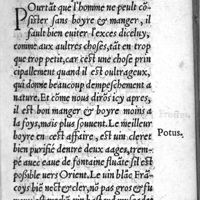 POurtāt que l'homme ne peult cō-
sister sans boyre & manger, il
fault bien euiter l'exces diceluy,
comme aux aultres choses, tāt en trop
que trop petit, car cest vne chose prin
cipallement quand il est oultrageux,
qui donne beaucoup dempeschement a
nature. Et cōme nous dirōs icy apres,
il est bon manger & boyre moins a
la foys, mais plus souuent. Le meilleur
boyre en cest affaire, est vin cleret
bien purifié dentre deux aages, trem-
pé auec eaue de fontaine fluāte sil est
possible vers Orient. Le vin blāc Frā-
coys biē net & cler, nō pas gros & fu
Potus.